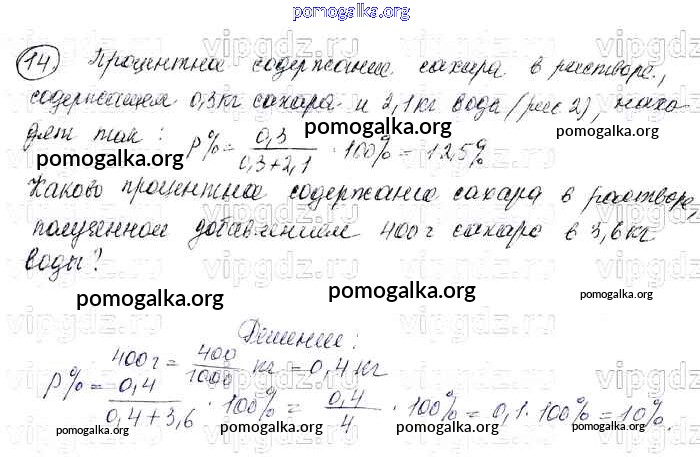 pomogalka.org
14. Процентное содержание сахара в растворе,
содержащем 0,3 кг сахара и 2,1 кг воды (рис 2), нахо
дят так: p% = 0,3 / 0,3+2,1 · 100% = 12,5%
pomogalka.org pomogalka.org
Каково процентное содержание сахара в растворе,
полученном добавлением 400 г сахара в 3,6 кг
воды?
pomogalka.org pomogalka.org pomogalka.org
Решение:
400 г = 400 / 1000 кг = 0,4 кг
p% = 0,4 / 0,4+3,6 · 100% = 0,4 / 4 · 100% = 0,1 · 100% = 10%.
pomogalka.org pomogalka.org pomogalka.org